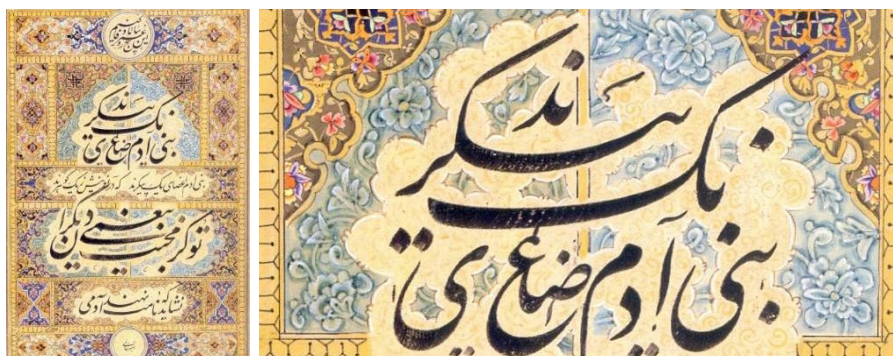 بنی آدم اعضای یک پیکرند
بنی آدم اعضای یک پیکرند که در آفرینش ز یک گوهرند
تو کز محنت دیگران بی غمی
نشاید که نامت نهند آدمی
بنی آدم اعضای یک پیکرند